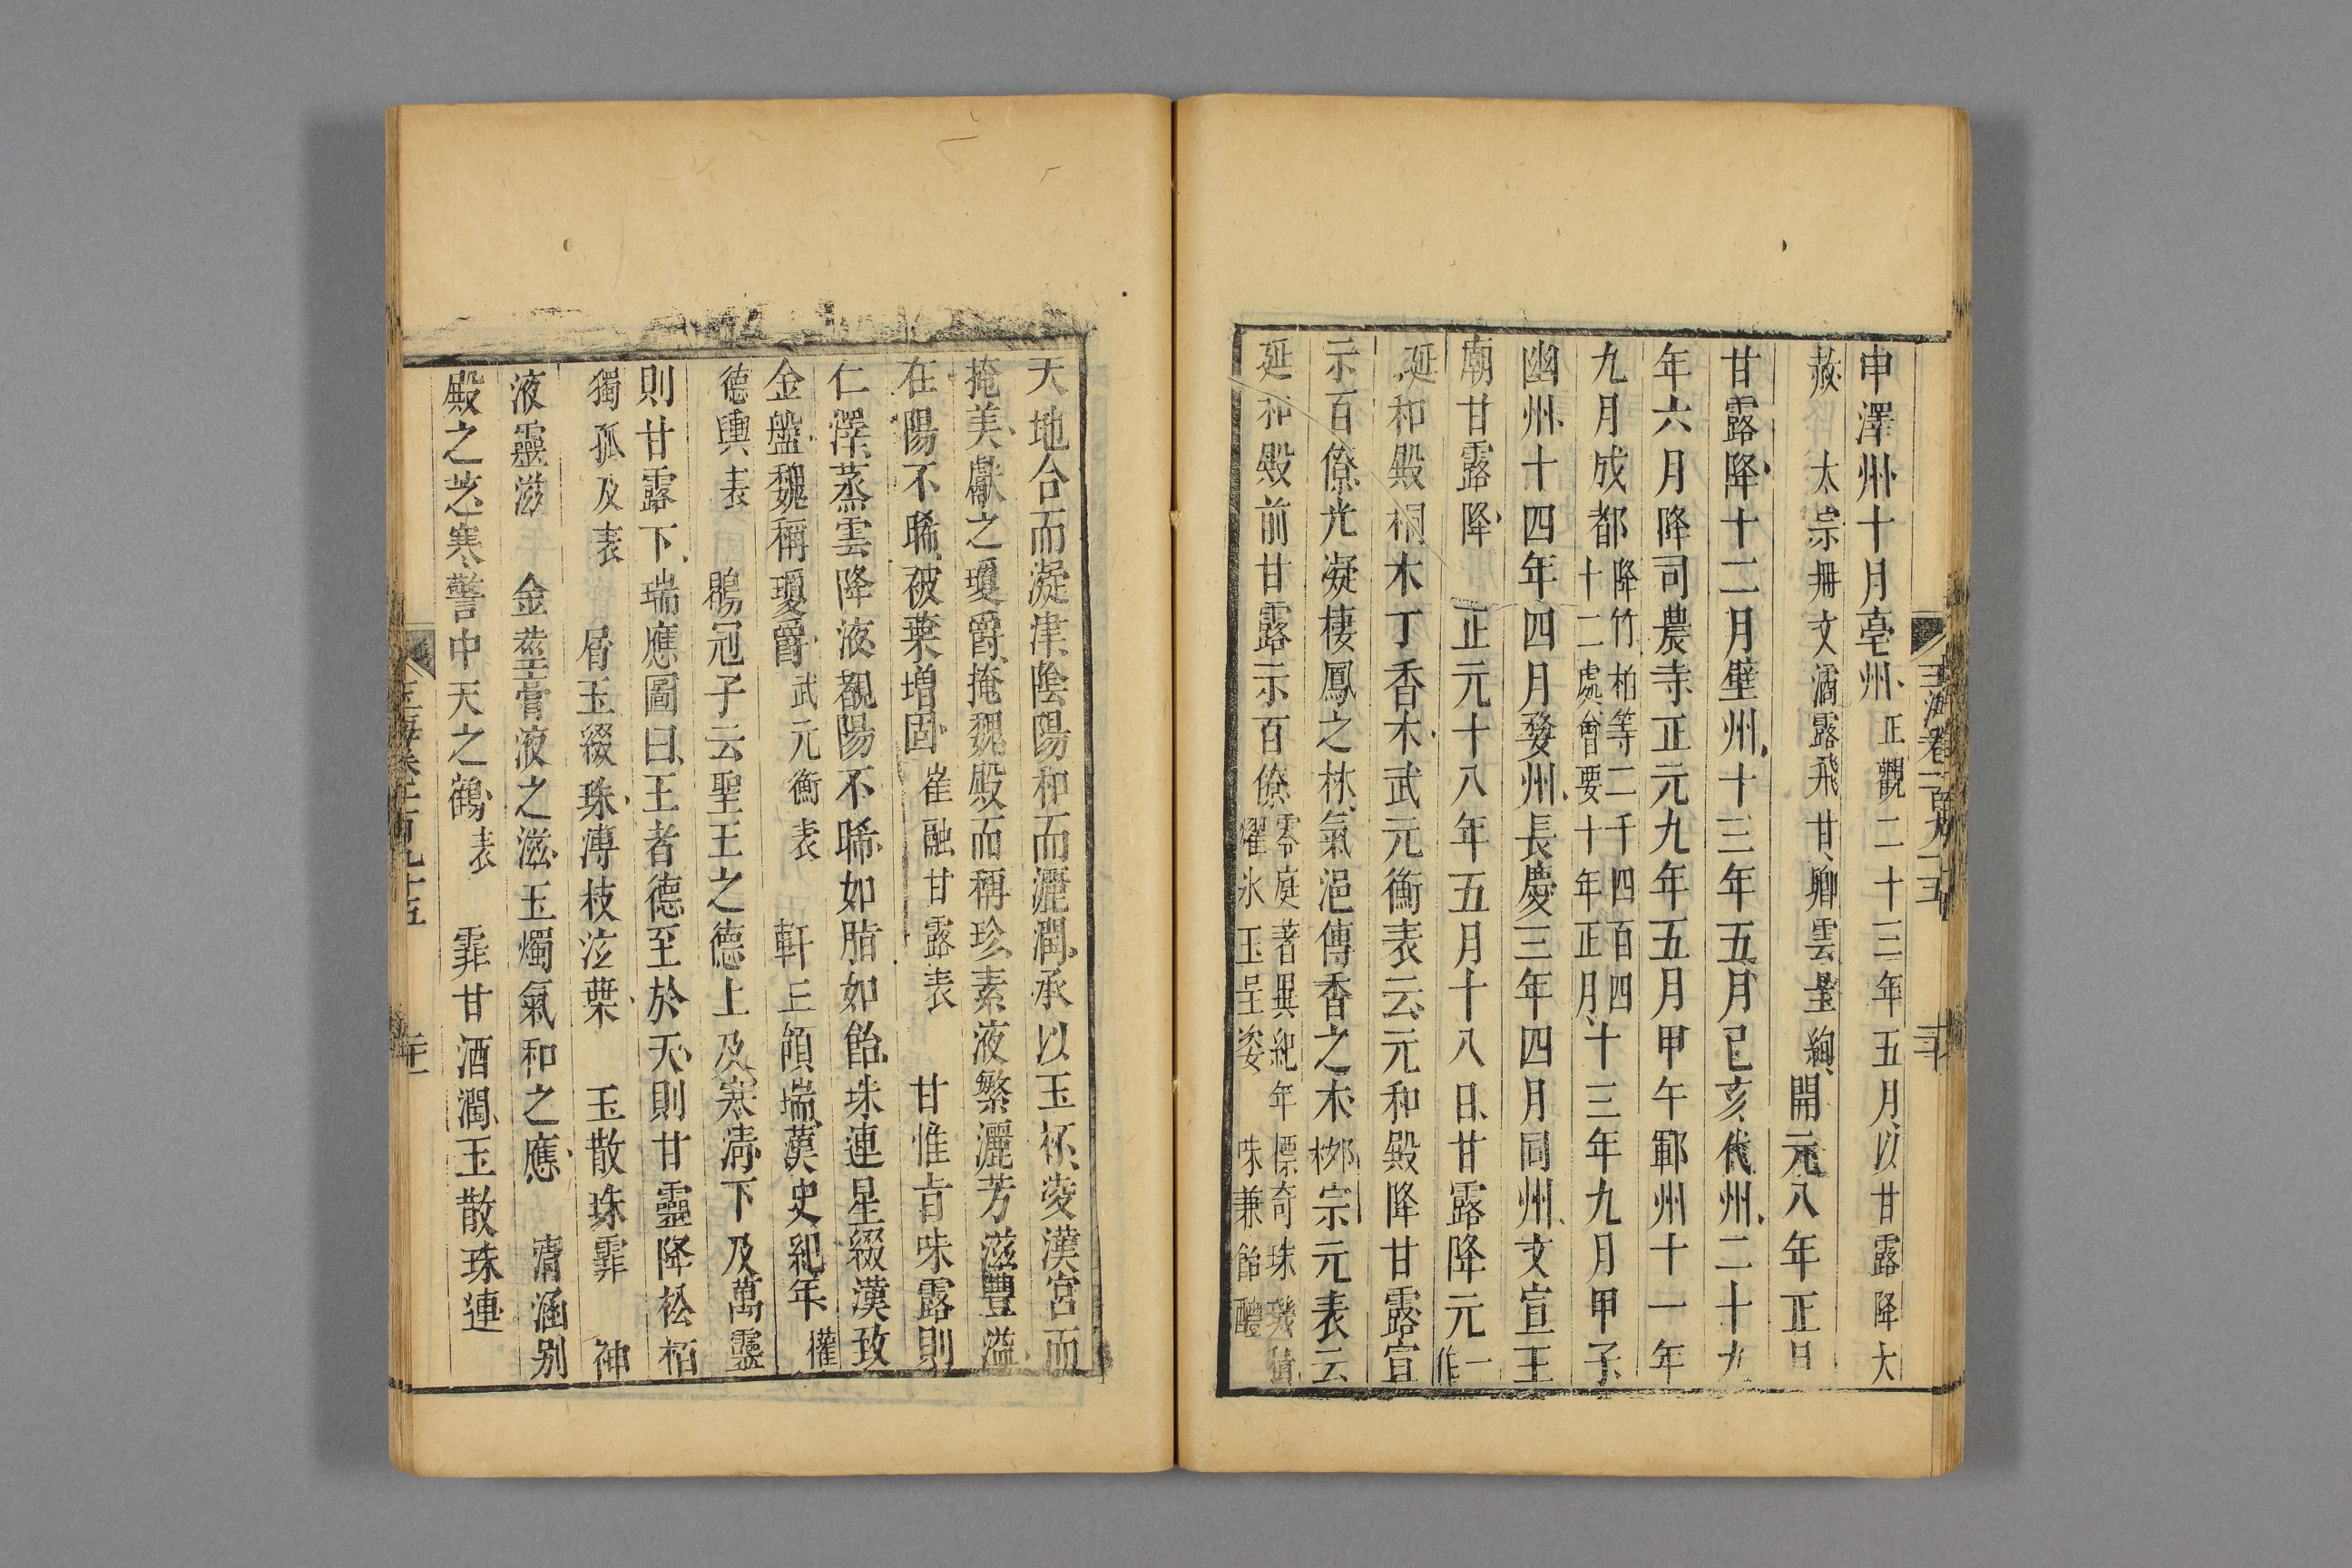 申澤州十月亳州正觀二十三年五月以甘露降大
赦 太宗冊文濡露飛甘卿雲呈絢開元八年正月
甘露降十二月壁州十三年五月己亥代州二十九
年六月降司農寺正元九年五月甲午鄆州十一年
九月成都降竹柏等二千四百四
十二處會要十年正月十三年九月甲子
幽州十四年四月婺州長慶三年四月同州文宣王
廟甘露降 正元十八年五月十八日甘露降元一
作
延和殿桐木丁香木武元衡表云元和殿降甘露宣
示百僚光凝棲鳳之林氣浥傳香之木柳宗元表云
延和殿前甘露示百僚零庭著異紀年 標奇珠璣
耀氷玉呈姿 味兼飴醴
天地合而凝津陰陽和而灑潤承以玉杯凌漢宮而
掩美獻之瓊爵掩魏殿而稱珍素液繁灑芳滋豐溢
在陽不晞被葉增固崔融甘露表 甘惟旨味露則
仁澤蒸雲降液覩陽不晞如脂如飴珠連星綴漢致
金盤魏稱瓊爵武元衡表 軒三頒瑞漢史紀年權
德輿表 鶡冠子云聖王之德上及寒清下及萬靈
則甘露下瑞應圖曰王者德至於天則甘靈降松栢
獨孤及表 屑玉綴珠漙枝泫葉 玉散珠霏 神
液靈滋 金莖膏液之滋玉燭氣和之應 霄涵别
殿之芝寒警中天之鶴表 霏甘酒潤玉散珠連